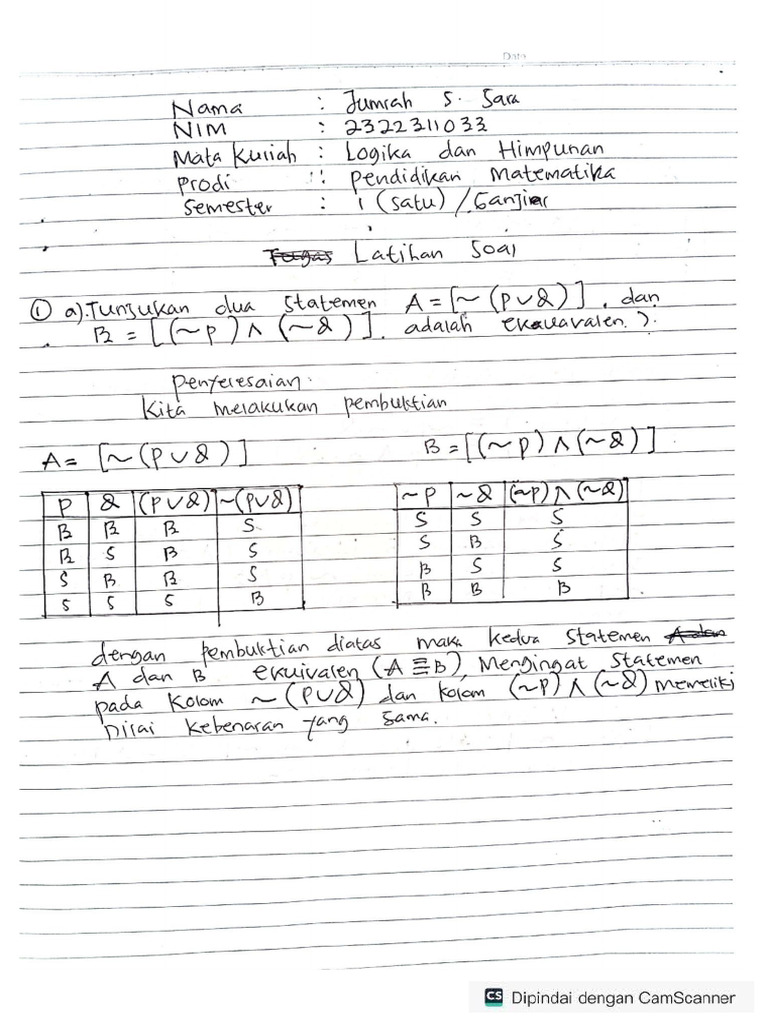 Date
Nama : Jumrah S. Sara
NIM : 2322311033
Mata Kuliah : Logika dan Himpunan
Prodi : Pendidikan Matematika
Semester : 1 (Satu) / Ganjil
Tugas Latihan Soal
① a). Tunjukan dua Statemen A = [~ (P ∪ &)] , dan
B = [(~P) ∧ (~&)]. adalah ekuavalen ).
Penyelesaian.
Kita melakukan pembuktian
A = [~ (P ∪ &)] B = [(~P) ∧ (~&)]
P & (P∪&) ~(P∪&) ~P ~& (~P) ∧ (~&)
B B B S S S S
B S B S S B S
S B B S B S S
S S S B B B B
dengan pembuktian diatas mak kedua Statemen A dan
A dan B ekuivalen (A ≡ B), Mengingat Statemen
pada Kolom ~ (P∪&) dan kolom (~P) ∧ (~&) memeliki
Nilai Kebenaran yang sama.
CS Dipindai dengan CamScanner